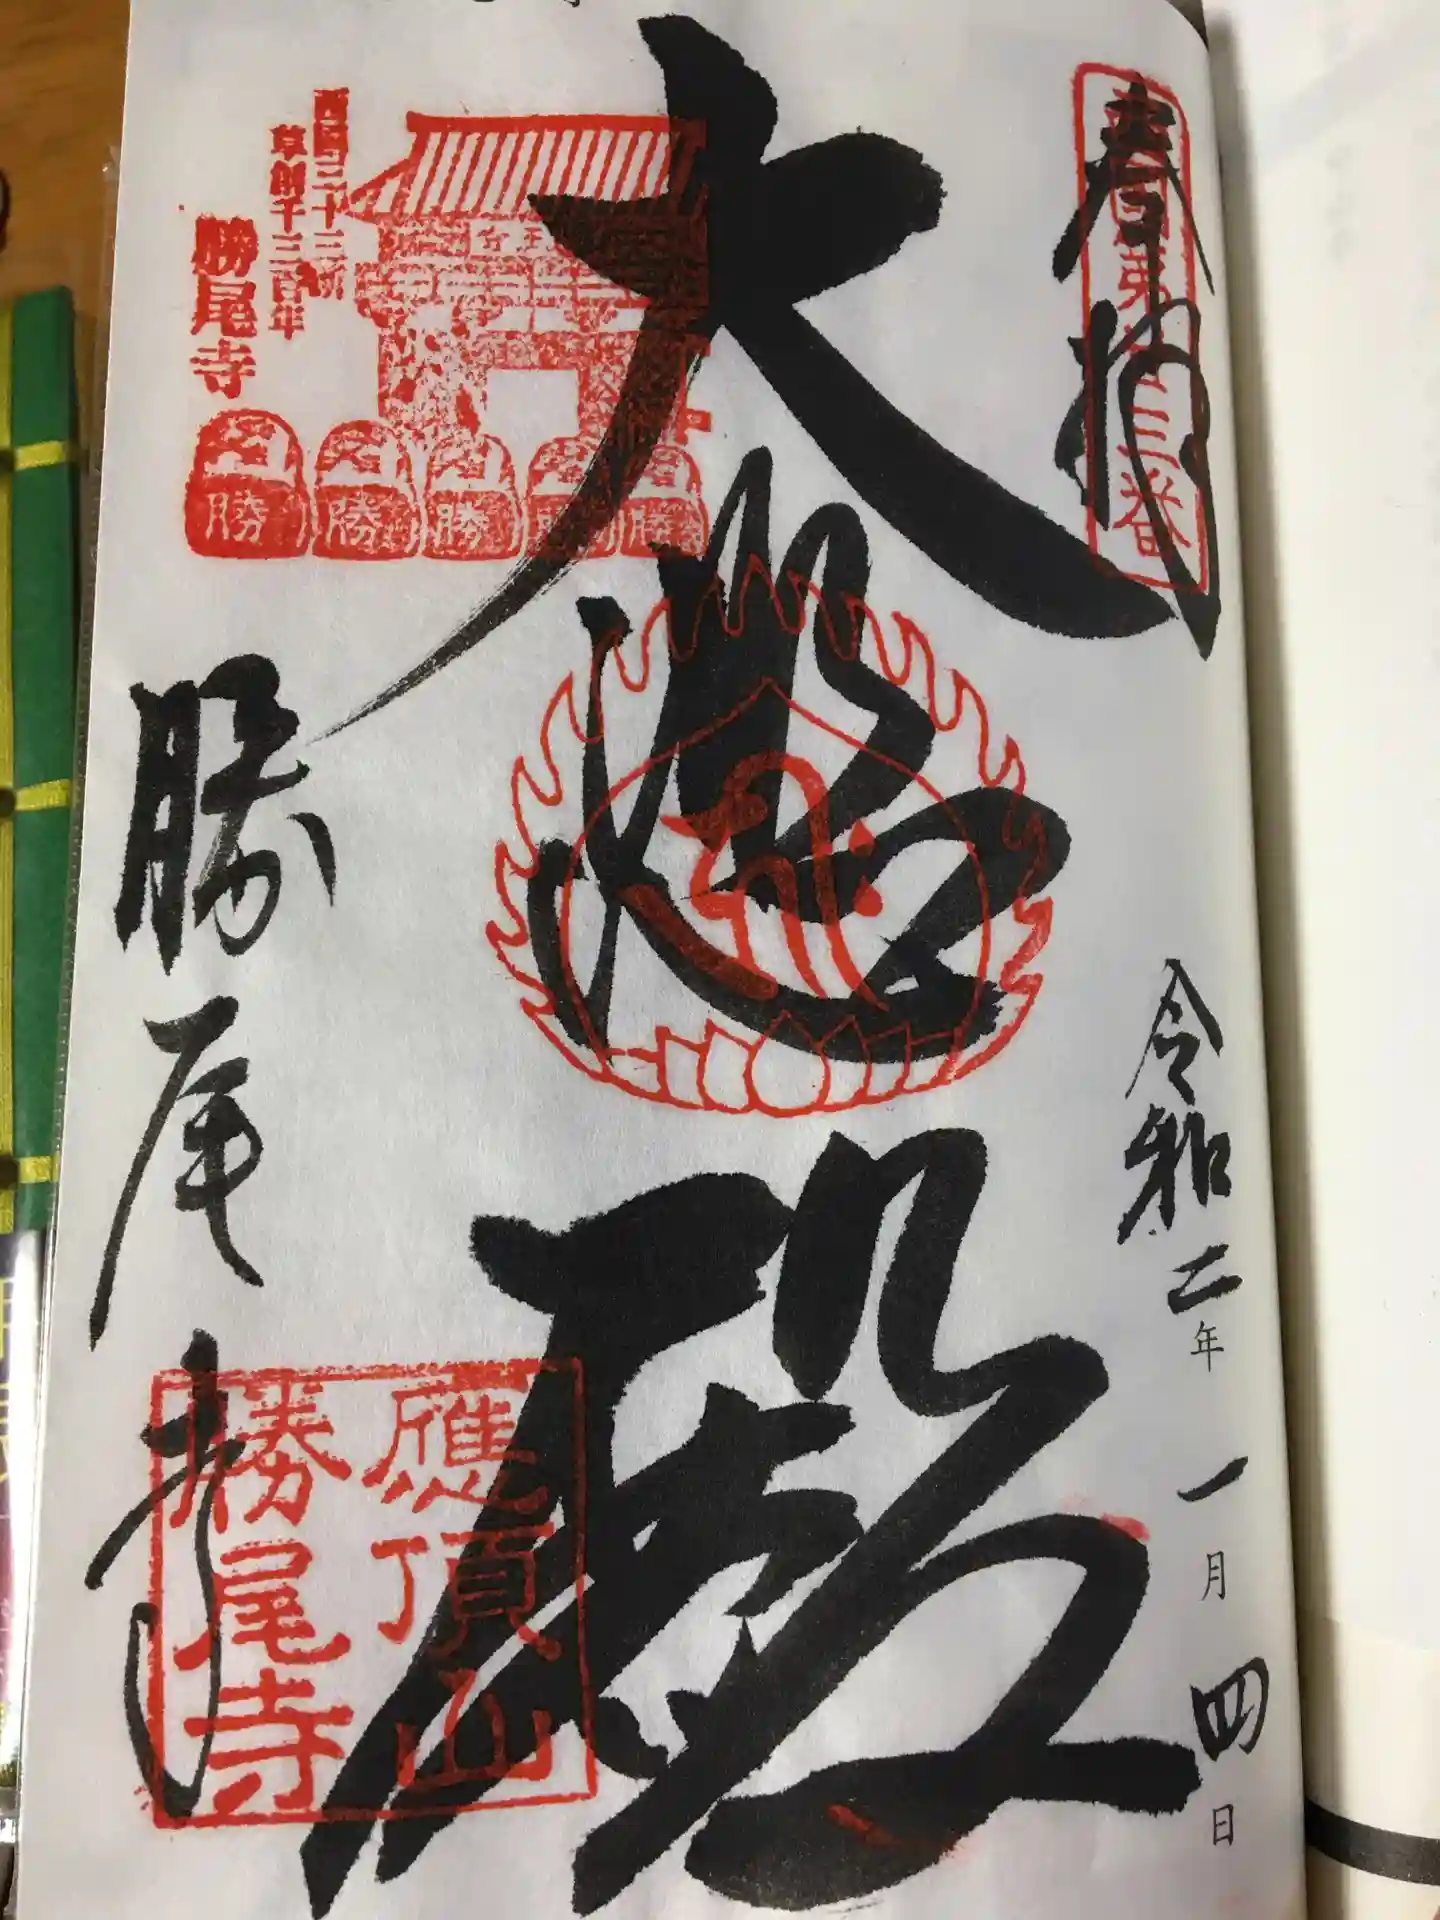 奉拝
西国第二十三番
令和二年一月四日
大悲殿
西国三十三所
草創千三百年
勝尾寺
勝
勝
勝
勝
勝
勝尾寺
應頂山
勝尾寺